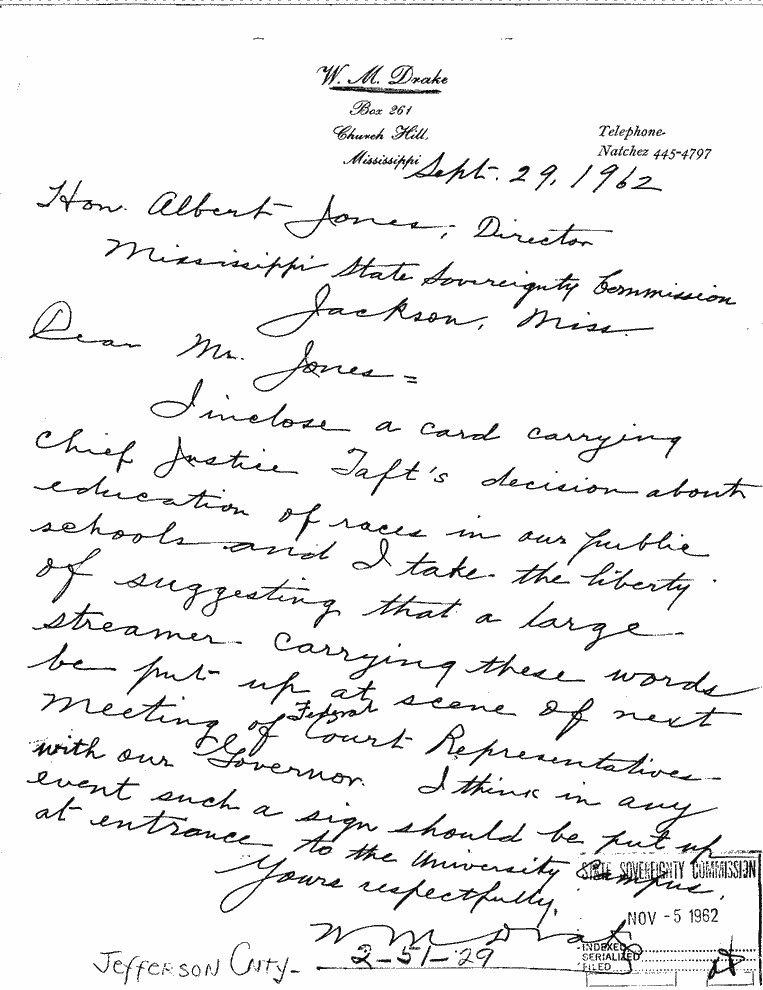 W. M. Drake
Box 261
Church Hill,
Mississippi
Telephone-
Natchez 445-4797
Sept. 29, 1962
Hon. Albert Jones, Director
Mississippi State Sovereignty Commission
Jackson, Miss.
Dear Mr. Jones=
I inclose a card carrying
Chief Justice Taft's decision about
education of races in our public
schools and I take the liberty
of suggesting that a large
streamer carrying these words
be put up at scene of next
meeting of Federal Court Representatives
with our Governor. I think in any
event such a sign should be put up
at entrance to the University Campus.
Yours respectfully,
W M Drake
STATE SOVEREIGNTY COMMISSION
NOV - 5 1962
INDEXED
SERIALIZED
FILED
Jefferson Cnty- 2-51-29